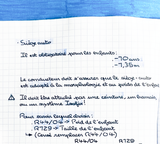 - Siège auto
Il est obligatoire pour les enfants:
- 10 ans
- 1,35 m.
Le conducteur doit s'assurer que le siège-auto
est adapté à la morphologie et au poids de l'enfant
Il doit être attaché par une ceinture, un harnais
ou un système Isofix!
Pour savoir lequel choisir:
R44/04 → Poid de l'enfant
R129 → Taille de l'enfant
(Qui remplace R44/04)
R44/04 R129